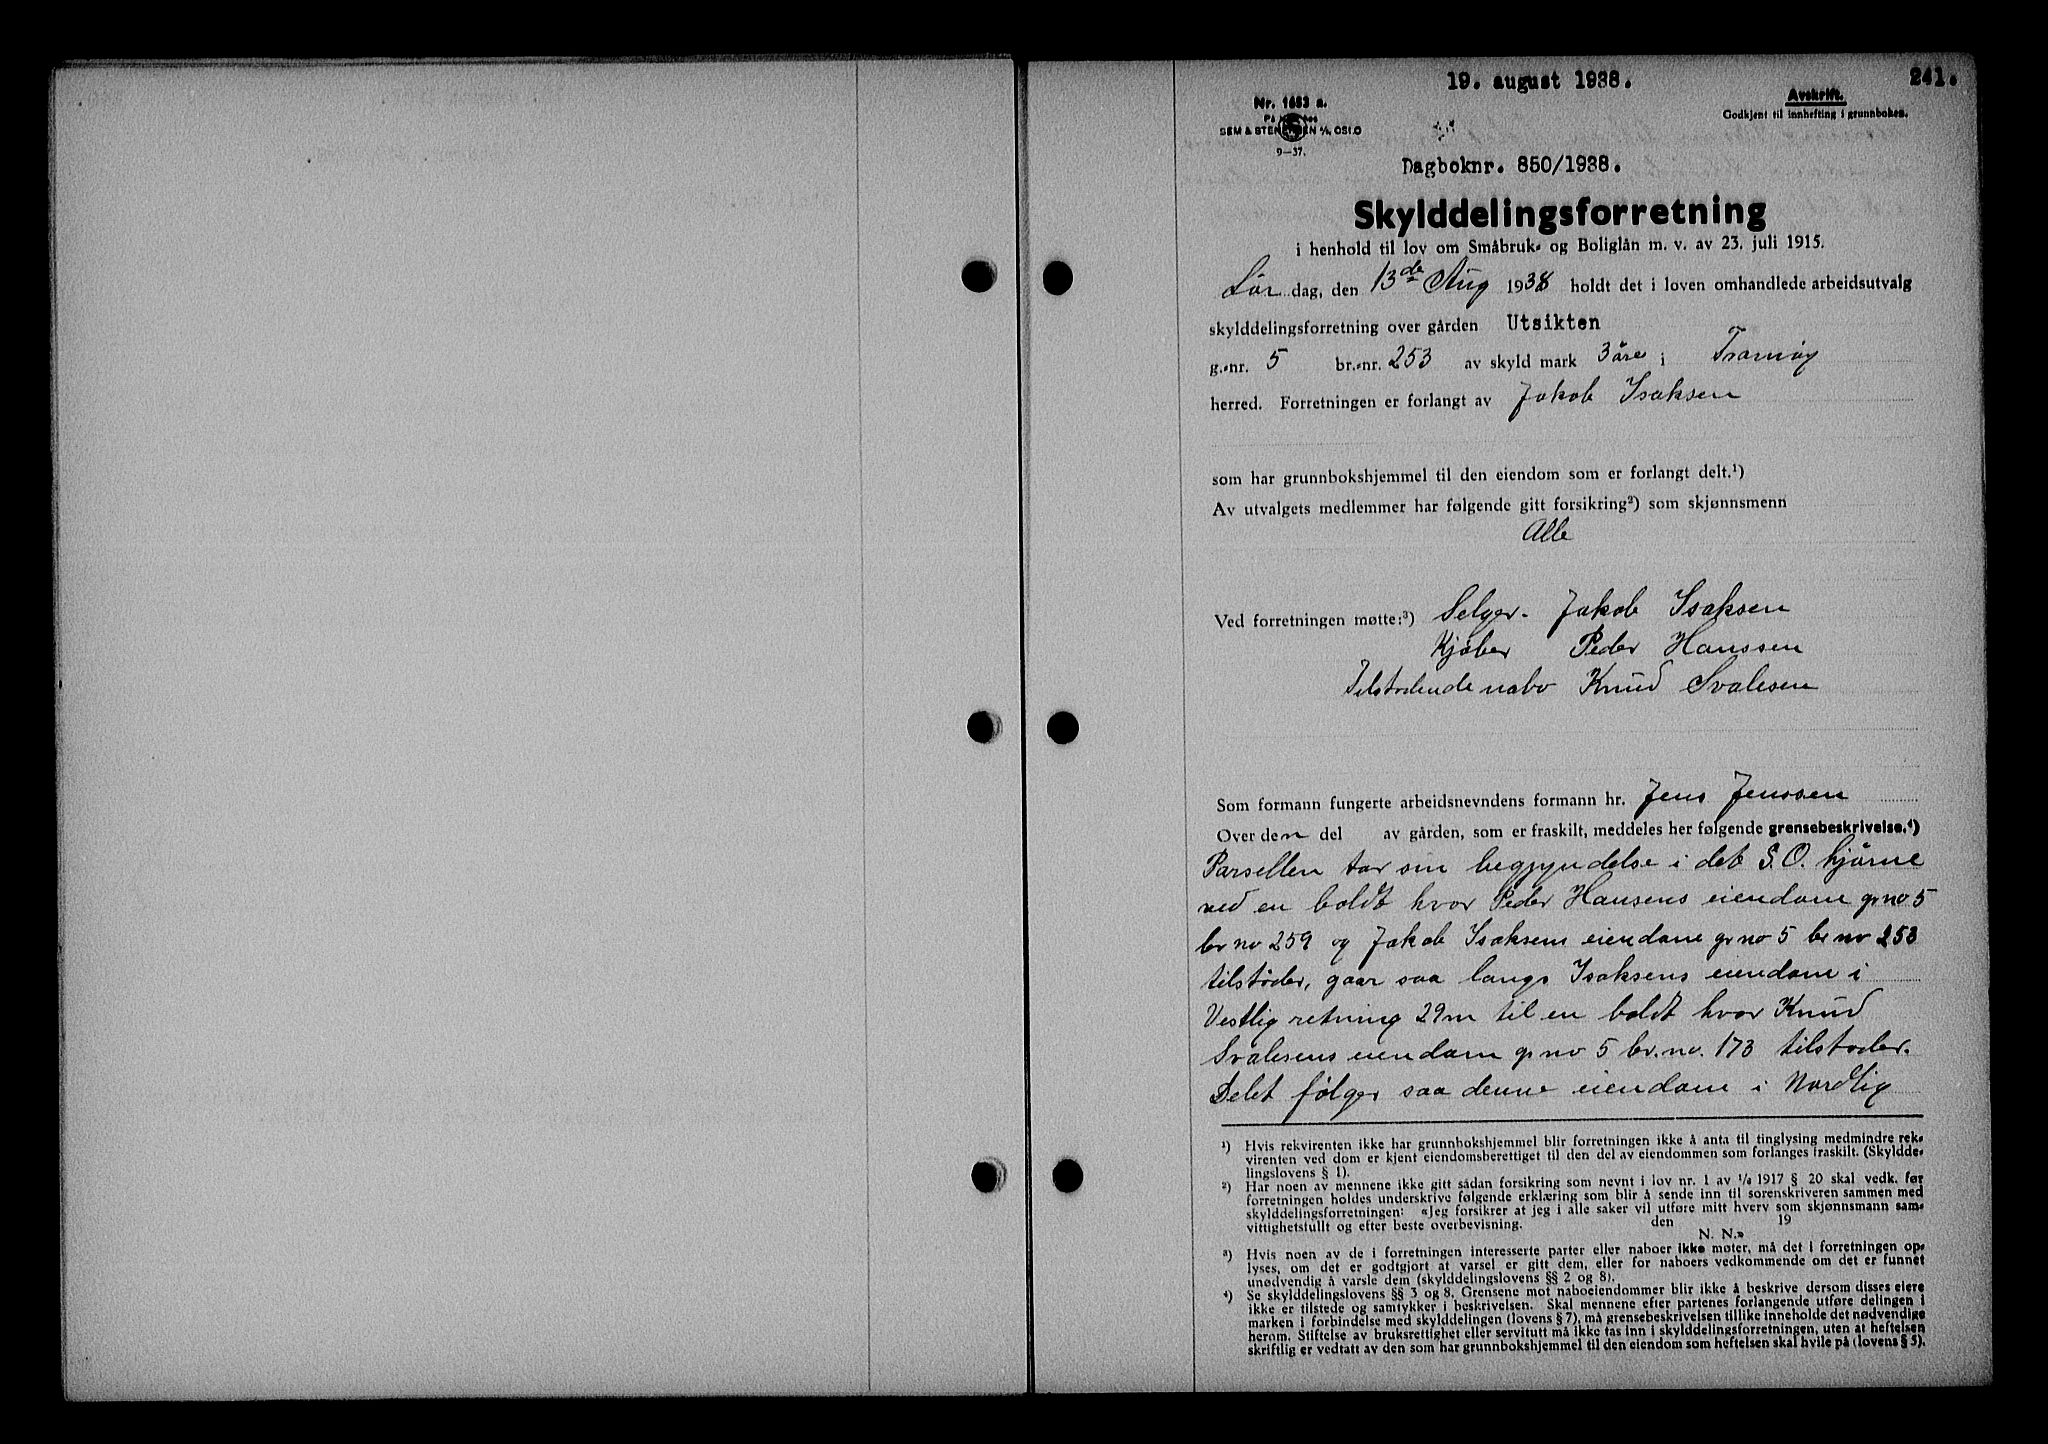 19. august 1938.
241.
Nr. 1683 a.
Avskrift.
Godkjent til innhefting i grunnboken.
SEM & STENERSEN A/S, OSLO
9—37.
Dagboknr. 850/1938.
Skylddelingsforretning
i henhold til lov om Småbruk- og Boliglån m. v. av 23. juli 1915.
Lør dag, den 13de Aug 1938 holdt det i loven omhandlede arbeidsutvalg
skylddelingsforretning over gården Utsikten
g.-nr. 5 br.-nr. 253 av skyld mark 3 øre i Tromøy
herred. Forretningen er forlangt av Jakob Isaksen
som har grunnbokshjemmel til den eiendom som er forlangt delt.¹)
Av utvalgets medlemmer har følgende gitt forsikring²) som skjønnsmenn
Alle
Ved forretningen møtte:³) Selger. Jakob Isaksen
Kjøber Peder Hanssen
Tilstødende nabo Knud Svalesen
Som formann fungerte arbeidsnevndens formann hr. Jens Jenssen
Over den del av gården, som er fraskilt, meddeles her følgende grensebeskrivelse.⁴)
Parsellen tar sin begyndelse i det S.O. hjørne
ved en boldt hvor Peder Hansens eiendom gr no 5
br no 259 og Jakob Isaksens eiendom gr no 5 br no 253
tilstøder, gaar saa langs Isaksens eiendom i
Vestlig retning 29m til en boldt hvor Knud
Svalesens eiendom gr no 5 br. no. 173 tilstøder.
Delet følger saa denne eiendom i Nordlig
¹) Hvis rekvirenten ikke har grunnbokshjemmel blir forretningen ikke å anta til tinglysing medmindre rek-
virenten ved dom er kjent eiendomsberettiget til den del av eiendommen som forlanges fraskilt. (Skyldde-
lingslovens § 1).
²) Har noen av mennene ikke gitt sådan forsikring som nevnt i lov nr. 1 av 1/6 1917 § 20 skal vedk. før
forretningen holdes underskrive følgende erklæring som blir å sende inn til sorenskriveren sammen med
skylddelingsforretningen: «Jeg forsikrer at jeg i alle saker vil utføre mitt hverv som skjønnsmann sam-
vittighetsfullt og efter beste overbevisning. den 19
N. N.»
³) Hvis noen av de i forretningen interesserte parter eller naboer ikke møter, må det i forretningen op-
lyses, om det er godtgjort at varsel er gitt dem, eller for naboers vedkommende om det er funnet
unødvendig å varsle dem (skylddelingslovens §§ 2 og 8).
⁴) Se skylddelingslovens §§ 3 og 8. Grensene mot naboeiendommer blir ikke å beskrive dersom disses eiere
ikke er tilstede og samtykker i beskrivelsen. Skal mennene efter partenes forlangende utføre delingen i
marken i forbindelse med skylddelingen (lovens § 7), må grensebeskrivelsen tillike inneholde det nødvendige
herom. Stiftelse av bruksrettighet eller servitutt må ikke tas inn i skylddelingsforretningen, uten at heftelsen
skriftlig er vedtatt av den som har grunnbokshjemmel til den eiendom som heftelsen skal hvile på (lovens § 5).